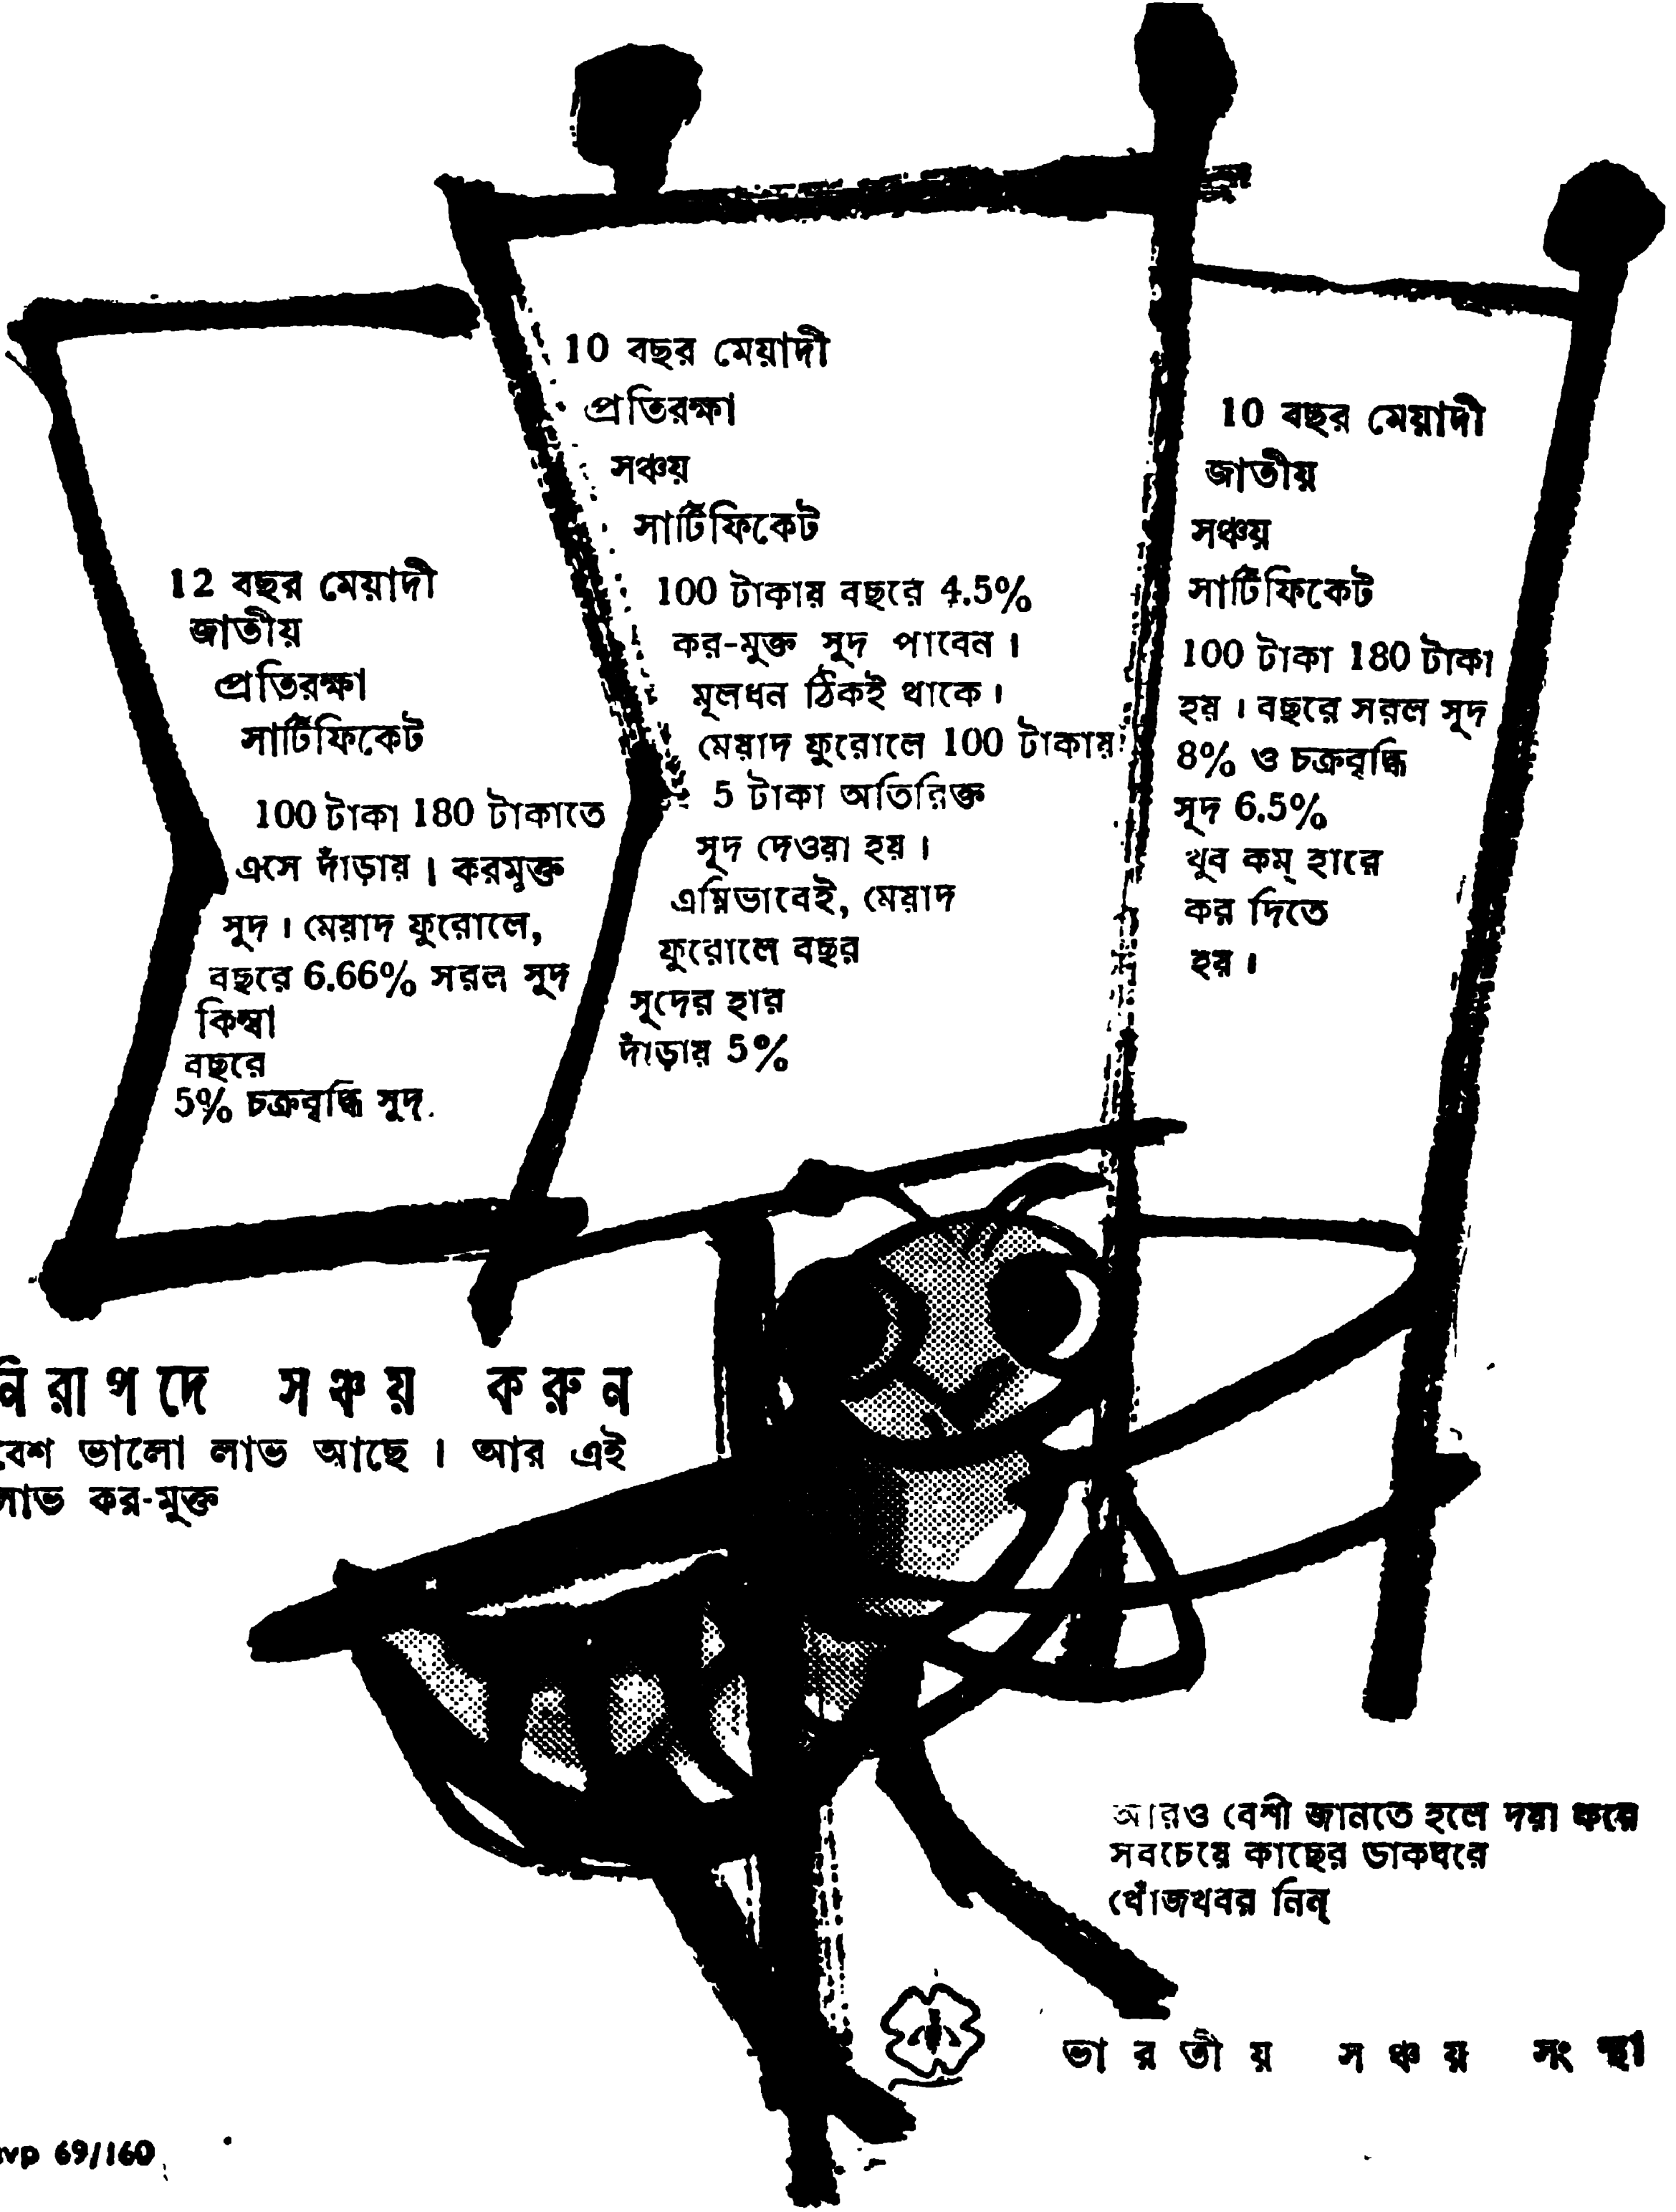 12 বছর মেয়াদী
জাতীয়
প্রতিরক্ষা
সার্টিফিকেট
100 টাকা 180 টাকাতে
এসে দাঁড়ায়। করমুক্ত
সুদ। মেয়াদ ফুরোলে,
বছরে 6.66% সরল সুদ
কিম্বা
বছরে
5% চক্রবৃদ্ধি সুদ.
10 বছর মেয়াদী
প্রতিরক্ষা
সঞ্চয়
সার্টিফিকেট
100 টাকায় বছরে 4.5%
কর-মুক্ত সুদ পাবেন।
মূলধন ঠিকই থাকে।
মেয়াদ ফুরোলে 100 টাকায়
5 টাকা অতিরিক্ত
সুদ দেওয়া হয়।
এম্নিভাবেই, মেয়াদ
ফুরোলে বছর
সুদের হার
দাঁড়ায় 5%
10 বছর মেয়াদী
জাতীয়
সঞ্চয়
সার্টিফিকেট
100 টাকা 180 টাকা
হয়। বছরে সরল সুদ
8% ও চক্রবৃদ্ধি
সুদ 6.5%
খুব কম্ হারে
কর দিতে
হয়।
নিরাপদে সঞ্চয় করুন
বেশ ভালো লাভ আছে। আর এই
লাভ কর-মুক্ত
আরও বেশী জানতে হলে দয়া করে
সবচেয়ে কাছের ডাকঘরে
খোঁজখবর নিন্
ভারতীয় সঞ্চয় সংস্থা
69/160